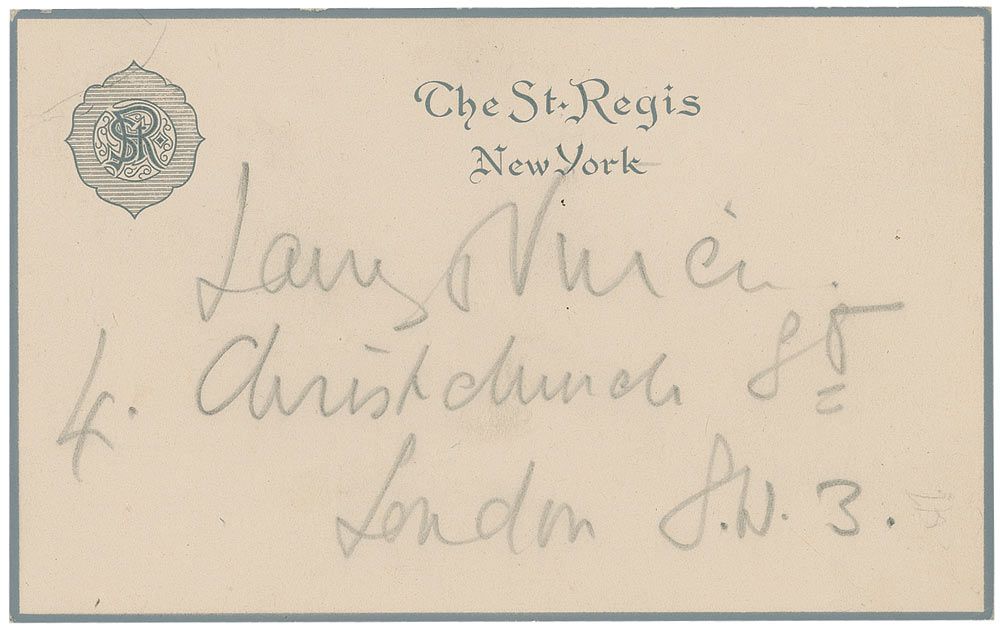 StR
The St. Regis
New York
Larry
4. Christchurch St
London S.W. 3.